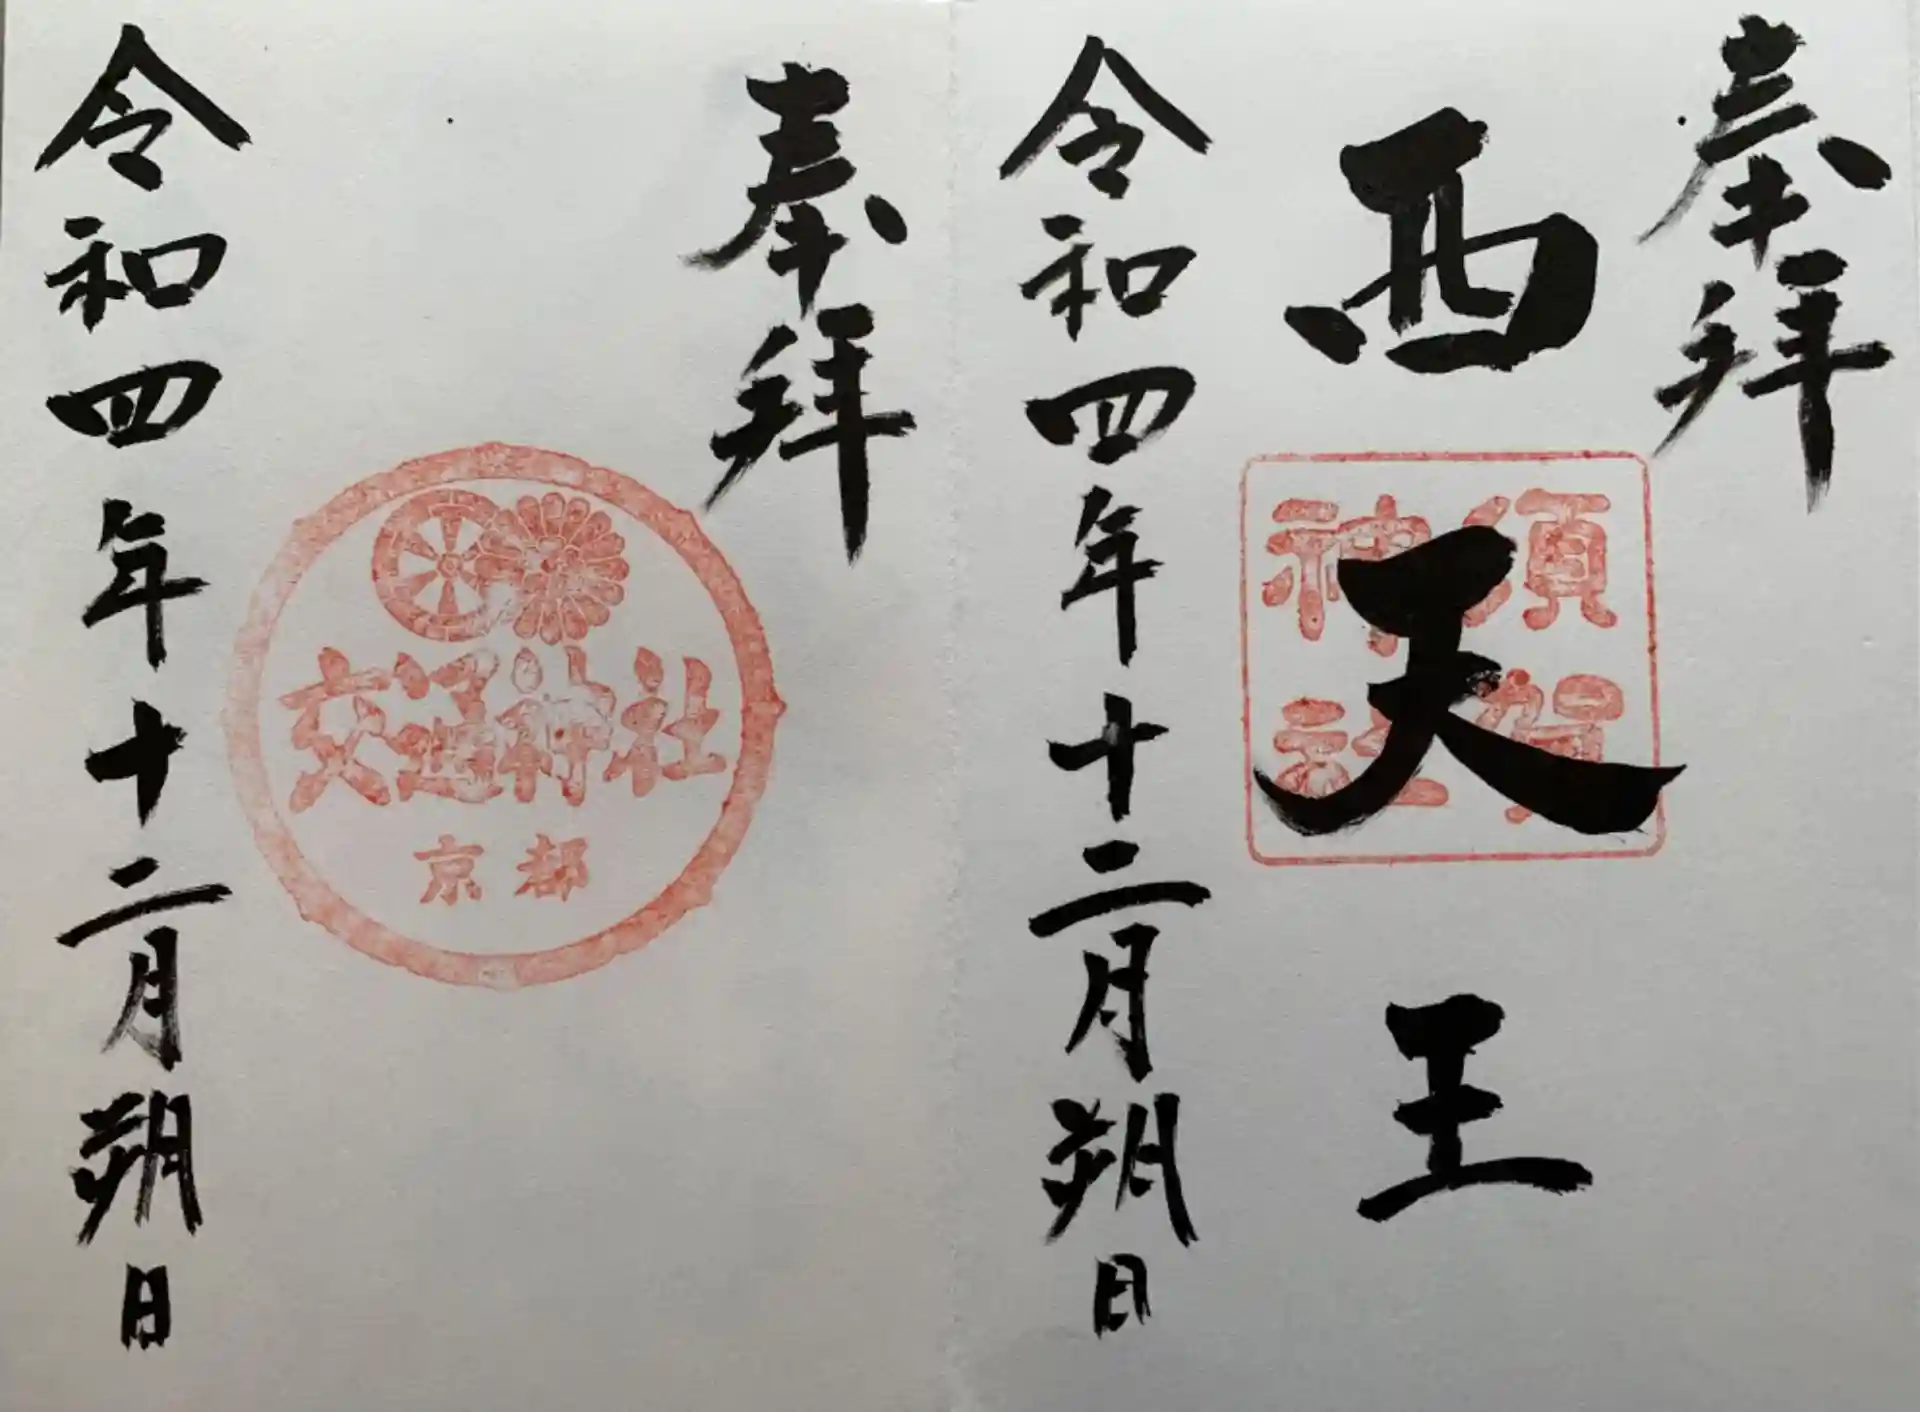 奉拝
西天王
須賀
神社
令和四年十二月朔日
奉拝
交通神社
京都
令和四年十二月朔日